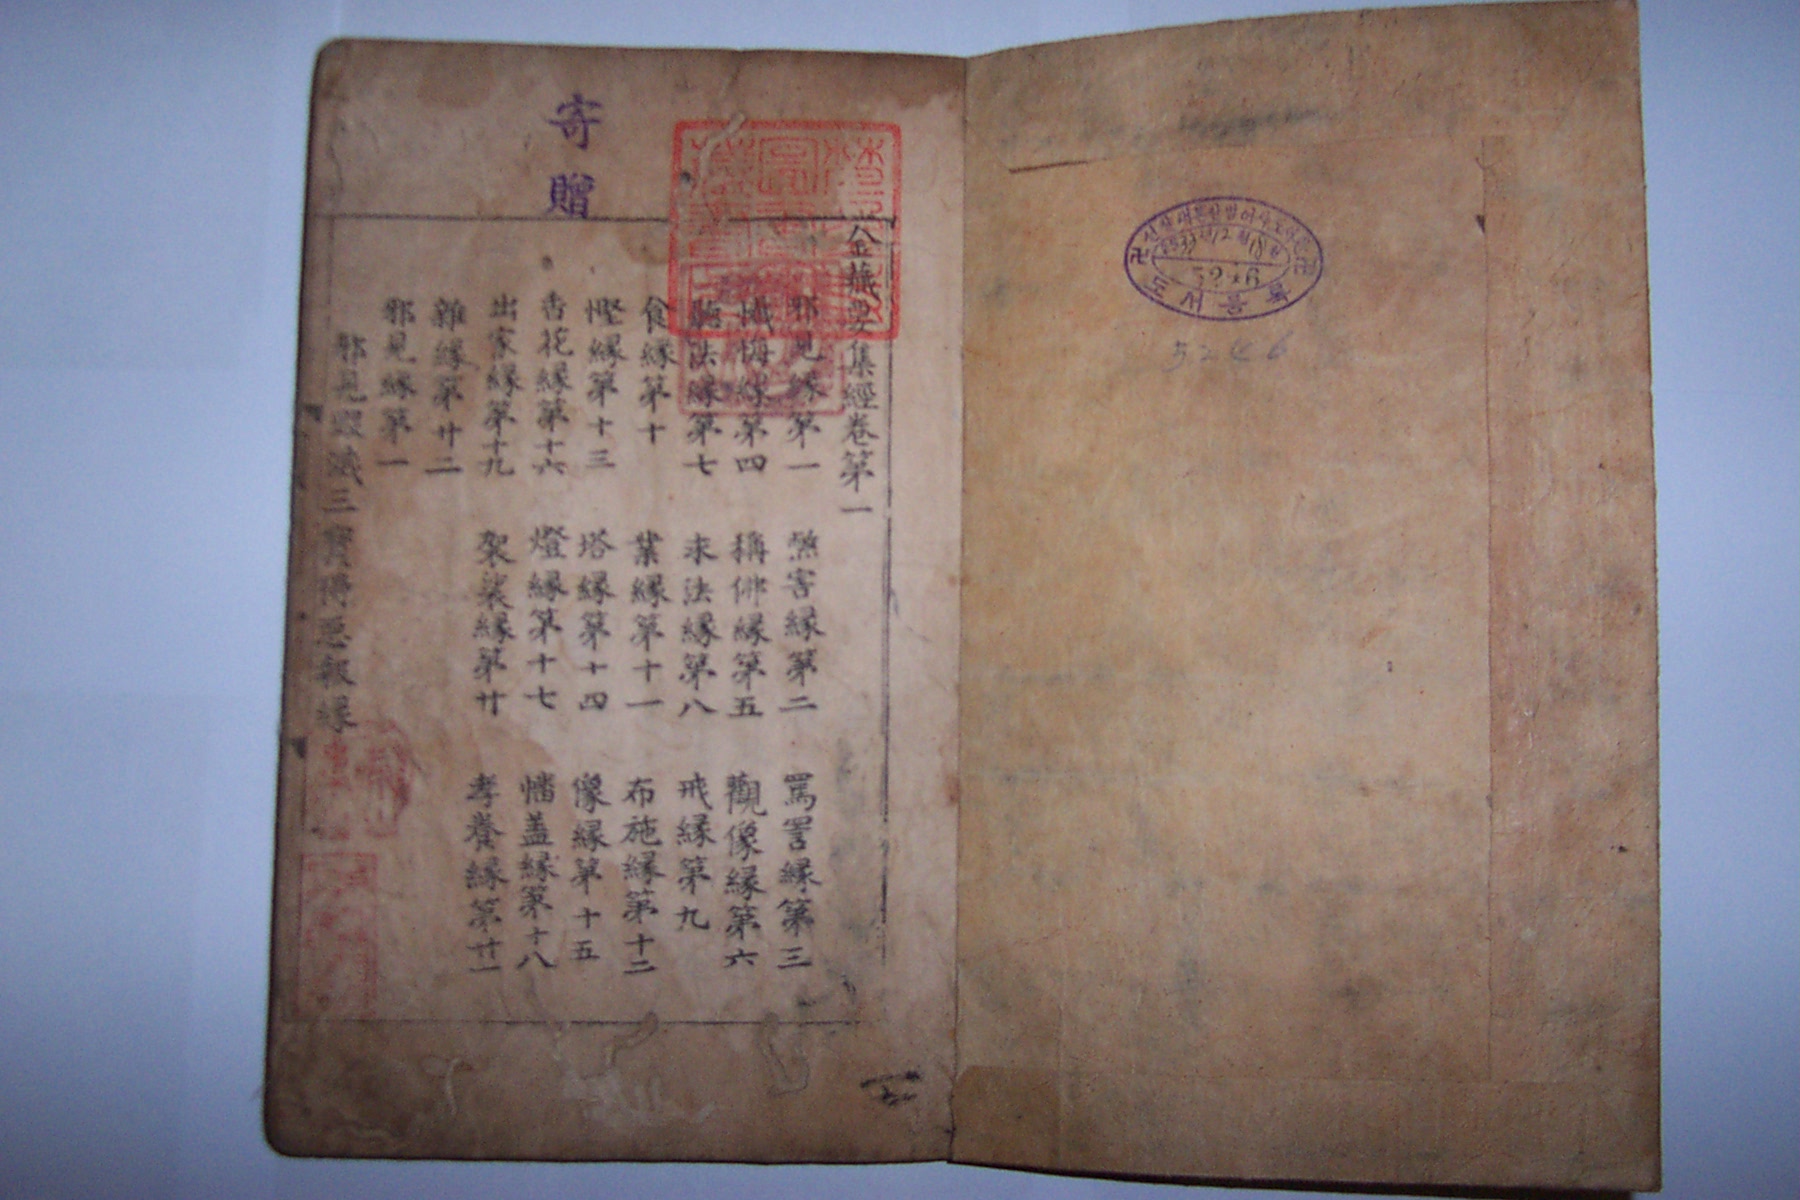 寄贈
金藏要集經卷第一
邪見緣第一 煞害緣第二 罵詈緣第三
懺悔緣第四 稱佛緣第五 觀像緣第六
聽法緣第七 求法緣第八 戒緣第九
食緣第十 業緣第十一 布施緣第十二
慳緣第十三 塔緣第十四 像緣第十五
香花緣第十六 燈緣第十七 幡盖緣第十八
出家緣第十九 袈裟緣第廿 孝養緣第廿一
雜緣第廿二
邪見緣第一
邪見毀滅三寶得惡報緣
도서등록
5246